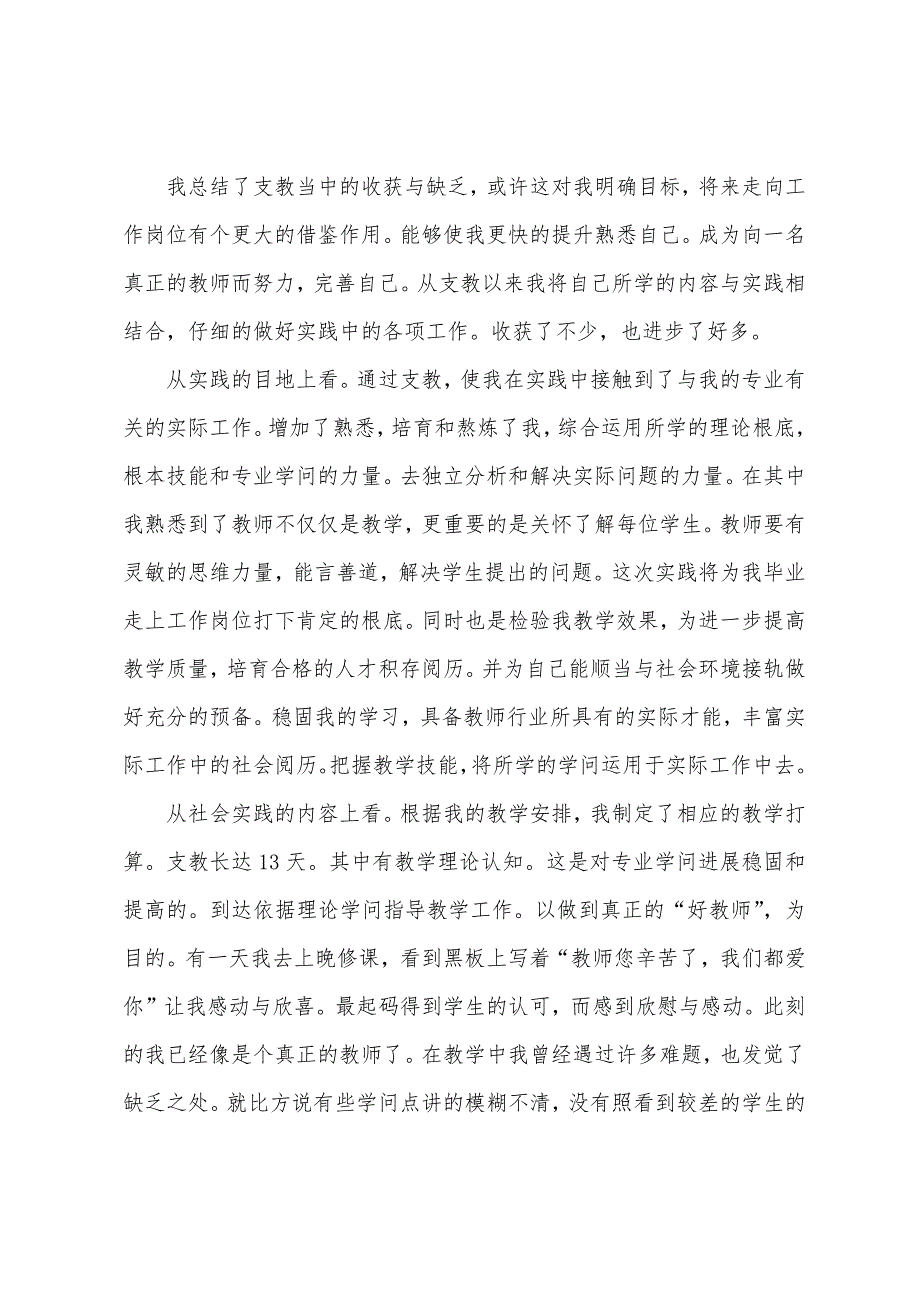 我总结了支教当中的收获与缺乏，或许这对我明确目标，将来走向工
作岗位有个更大的借鉴作用。能够使我更快的提升熟悉自己。成为向一名
真正的教师而努力，完善自己。从支教以来我将自己所学的内容与实践相
结合，仔细的做好实践中的各项工作。收获了不少，也进步了好多。
从实践的目地上看。通过支教，使我在实践中接触到了与我的专业有
关的实际工作。增加了熟悉，培育和熬炼了我，综合运用所学的理论根底，
根本技能和专业学问的力量。去独立分析和解决实际问题的力量。在其中
我熟悉到了教师不仅仅是教学，更重要的是关怀了解每位学生。教师要有
灵敏的思维力量，能言善道，解决学生提出的问题。这次实践将为我毕业
走上工作岗位打下肯定的根底。同时也是检验我教学效果，为进一步提高
教学质量，培育合格的人才积存阅历。并为自己能顺当与社会环境接轨做
好充分的预备。稳固我的学习，具备教师行业所具有的实际才能，丰富实
际工作中的社会阅历。把握教学技能，将所学的学问运用于实际工作中去。
从社会实践的内容上看。根据我的教学安排，我制定了相应的教学打
算。支教长达 13 天。其中有教学理论认知。这是对专业学问进展稳固和
提高的。到达依据理论学问指导教学工作。以做到真正的“好教师”，为
目的。有一天我去上晚修课，看到黑板上写着“教师您辛苦了，我们都爱
你”让我感动与欣喜。最起码得到学生的认可，而感到欣慰与感动。此刻
的我已经像是个真正的教师了。在教学中我曾经遇过许多难题，也发觉了
缺乏之处。就比方说有些学问点讲的模糊不清，没有照看到较差的学生的